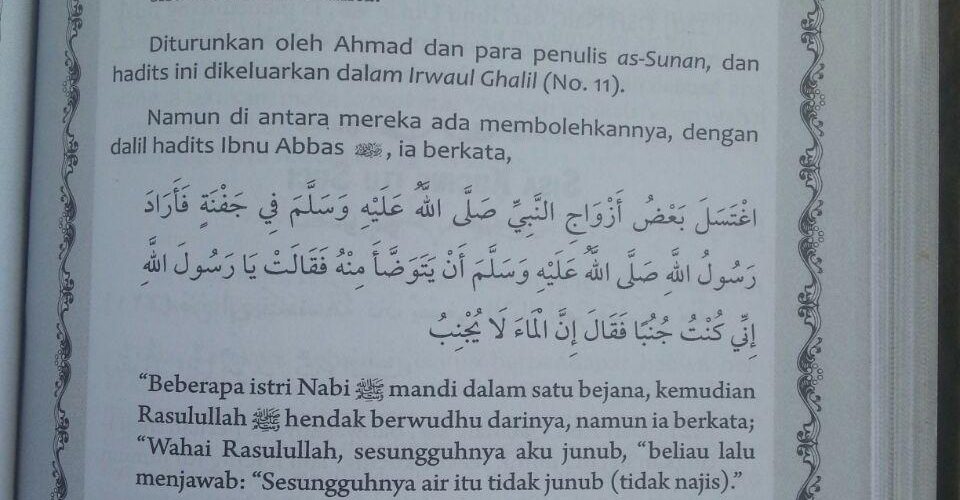 Diturunkan oleh Ahmad dan para penulis as-Sunan, dan
hadits ini dikeluarkan dalam Irwaul Ghalil (No. 11).
Namun di antara mereka ada membolehkannya, dengan
dalil hadits Ibnu Abbas, ia berkata,
اغْتَسَلَ بَعْضُ أَزْوَاجِ النَّبِيِّ صَلَّى اللَّهُ عَلَيْهِ وَسَلَّمَ فِي جَفْنَةٍ فَأَرَادَ
رَسُولُ اللَّهِ صَلَّى اللَّهُ عَلَيْهِ وَسَلَّمَ أَنْ يَتَوَضَّأَ مِنْهُ فَقَالَتْ يَا رَسُولَ اللَّهِ
إِنِّي كُنْتُ جُنُبًا فَقَالَ إِنَّ الْمَاءَ لَا يُجْنِبُ
“Beberapa istri Nabi ﷺ mandi dalam satu bejana, kemudian
Rasulullah ﷺ hendak berwudhu darinya, namun ia berkata;
“Wahai Rasulullah, sesungguhnya aku junub, “beliau lalu
menjawab: “Sesungguhnya air itu tidak junub (tidak najis).”